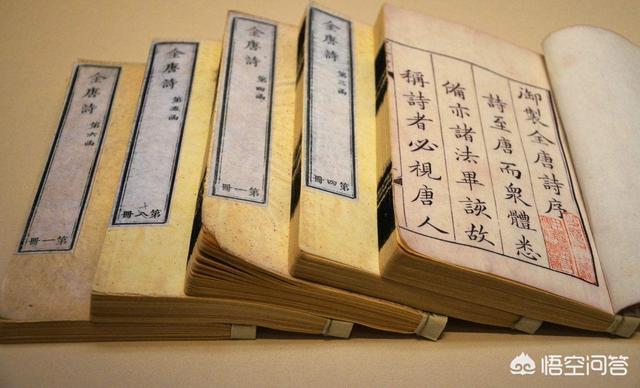 御製全唐詩序
詩至唐而衆體悉
備亦諸法畢該故
稱詩者必視唐人
全唐詩 第三函
第四冊
全唐詩 第四函
第一冊
全唐詩 第五函
第十八冊
全唐詩 第六函
第一冊
悟空问答